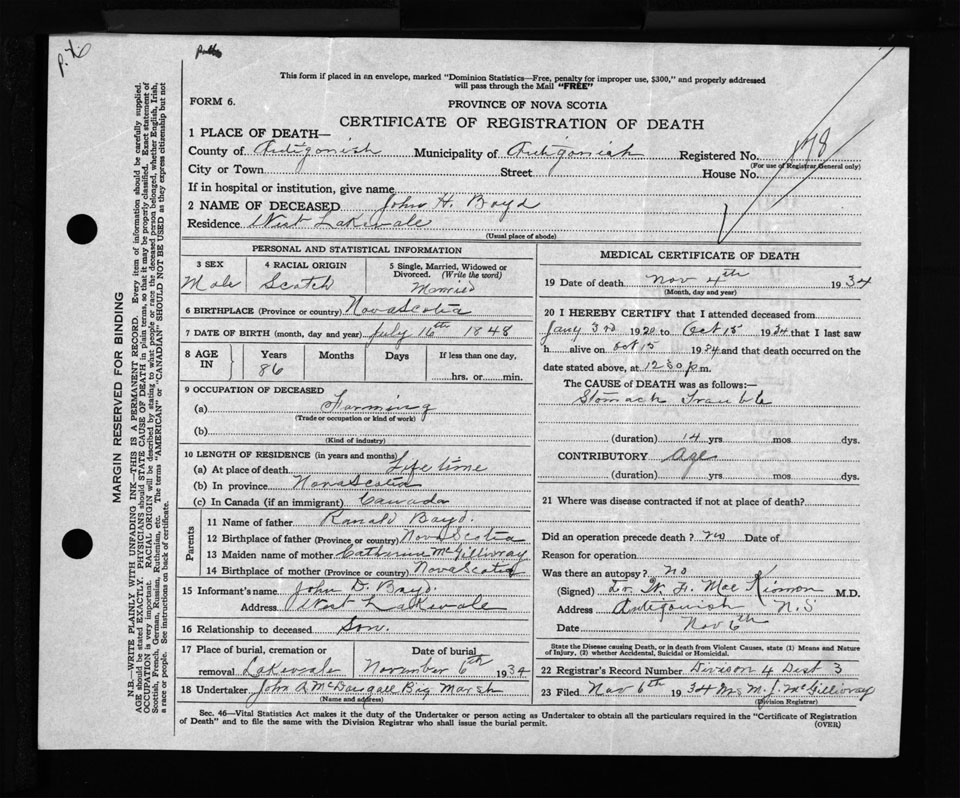 This form if placed in an envelope, marked "Dominion Statistics—Free, penalty for improper use, $300," and properly addressed
will pass through the Mail "FREE"
FORM 6.
PROVINCE OF NOVA SCOTIA
CERTIFICATE OF REGISTRATION OF DEATH
1 PLACE OF DEATH—
County of Antigonish Municipality of Antigonish Registered No. 178
(For use of Registrar General only)
City or Town Street House No.
If in hospital or institution, give name
2 NAME OF DECEASED John H. Boyd
Residence West Lakevale
(Usual place of abode)
PERSONAL AND STATISTICAL INFORMATION
3 SEX 4 RACIAL ORIGIN 5 Single, Married, Widowed or
Divorced. (Write the word)
Male Scotch Married
6 BIRTHPLACE (Province or country) Nova Scotia
7 DATE OF BIRTH (month, day and year) July 16th 1848
8 AGE IN Years Months Days If less than one day,
86 hrs. or min.
9 OCCUPATION OF DECEASED
(a) Farming
(Trade or occupation or kind of work)
(b)
(Kind of industry)
10 LENGTH OF RESIDENCE (in years and months)
(a) At place of death Life time
(b) In province Nova Scotia
(c) In Canada (if an immigrant) Canada
Parents
11 Name of father Ranald Boyd.
12 Birthplace of father (Province or country) Nova Scotia
13 Maiden name of mother Catherine McGillivray
14 Birthplace of mother (Province or country) Nova Scotia
15 Informant's name John D. Boyd.
Address West Lakevale
16 Relationship to deceased Son.
17 Place of burial, cremation or Date of burial
removal Lakevale November 6th 1934
18 Undertaker John A McDougall Big Marsh
(Name and address)
MEDICAL CERTIFICATE OF DEATH
19 Date of death Nov 4th 1934
(Month, day and year)
20 I HEREBY CERTIFY that I attended deceased from
Jany 3rd 1920 to Oct 15 1934 that I last saw
h alive on Oct 15 1934 and that death occurred on
date stated above, at 12 30 p.m.
The CAUSE of DEATH was as follows:—
Stomach Trouble
(duration) 14 yrs mos dys.
CONTRIBUTORY Age
(duration) yrs mos dys.
21 Where was disease contracted if not at place of death?
Did an operation precede death? no Date of
Reason for operation
Was there an autopsy? no
(Signed) Dr. W. F. MacKinnon M.D.
Address Antigonish N.S
Date Nov 6th
State the Disease causing Death, or in death from Violent Causes, state (1) Means and Nature
of Injury, (2) whether Accidental, Suicidal or Homicidal.
22 Registrar's Record Number Divison 4 Dist 3
23 Filed Nov 6th 1934 Mrs M. J. McGillivray
(Division Registrar)
Sec. 46—Vital Statistics Act makes it the duty of the Undertaker or person acting as Undertaker to obtain all the particulars required in the "Certificate of Registration
of Death" and to file the same with the Division Registrar who shall issue the burial permit. (OVER)
MARGIN RESERVED FOR BINDING
N.B.—WRITE PLAINLY WITH UNFADING INK—THIS IS A PERMANENT RECORD. Every item of information should be carefully supplied.
AGE should be stated EXACTLY. PHYSICIANS should STATE CAUSE OF DEATH in plain terms, so that it may be properly classified. Exact statement of
OCCUPATION is very important. RACIAL ORIGIN will be described by stating to what people or race the deceased person belonged, whether English, Irish,
Scottish, French, German, Russian, Ruthenian, etc. The terms "AMERICAN" or "CANADIAN" SHOULD NOT BE USED as they express citizenship but not
a race or people. See instructions on back of certificate.